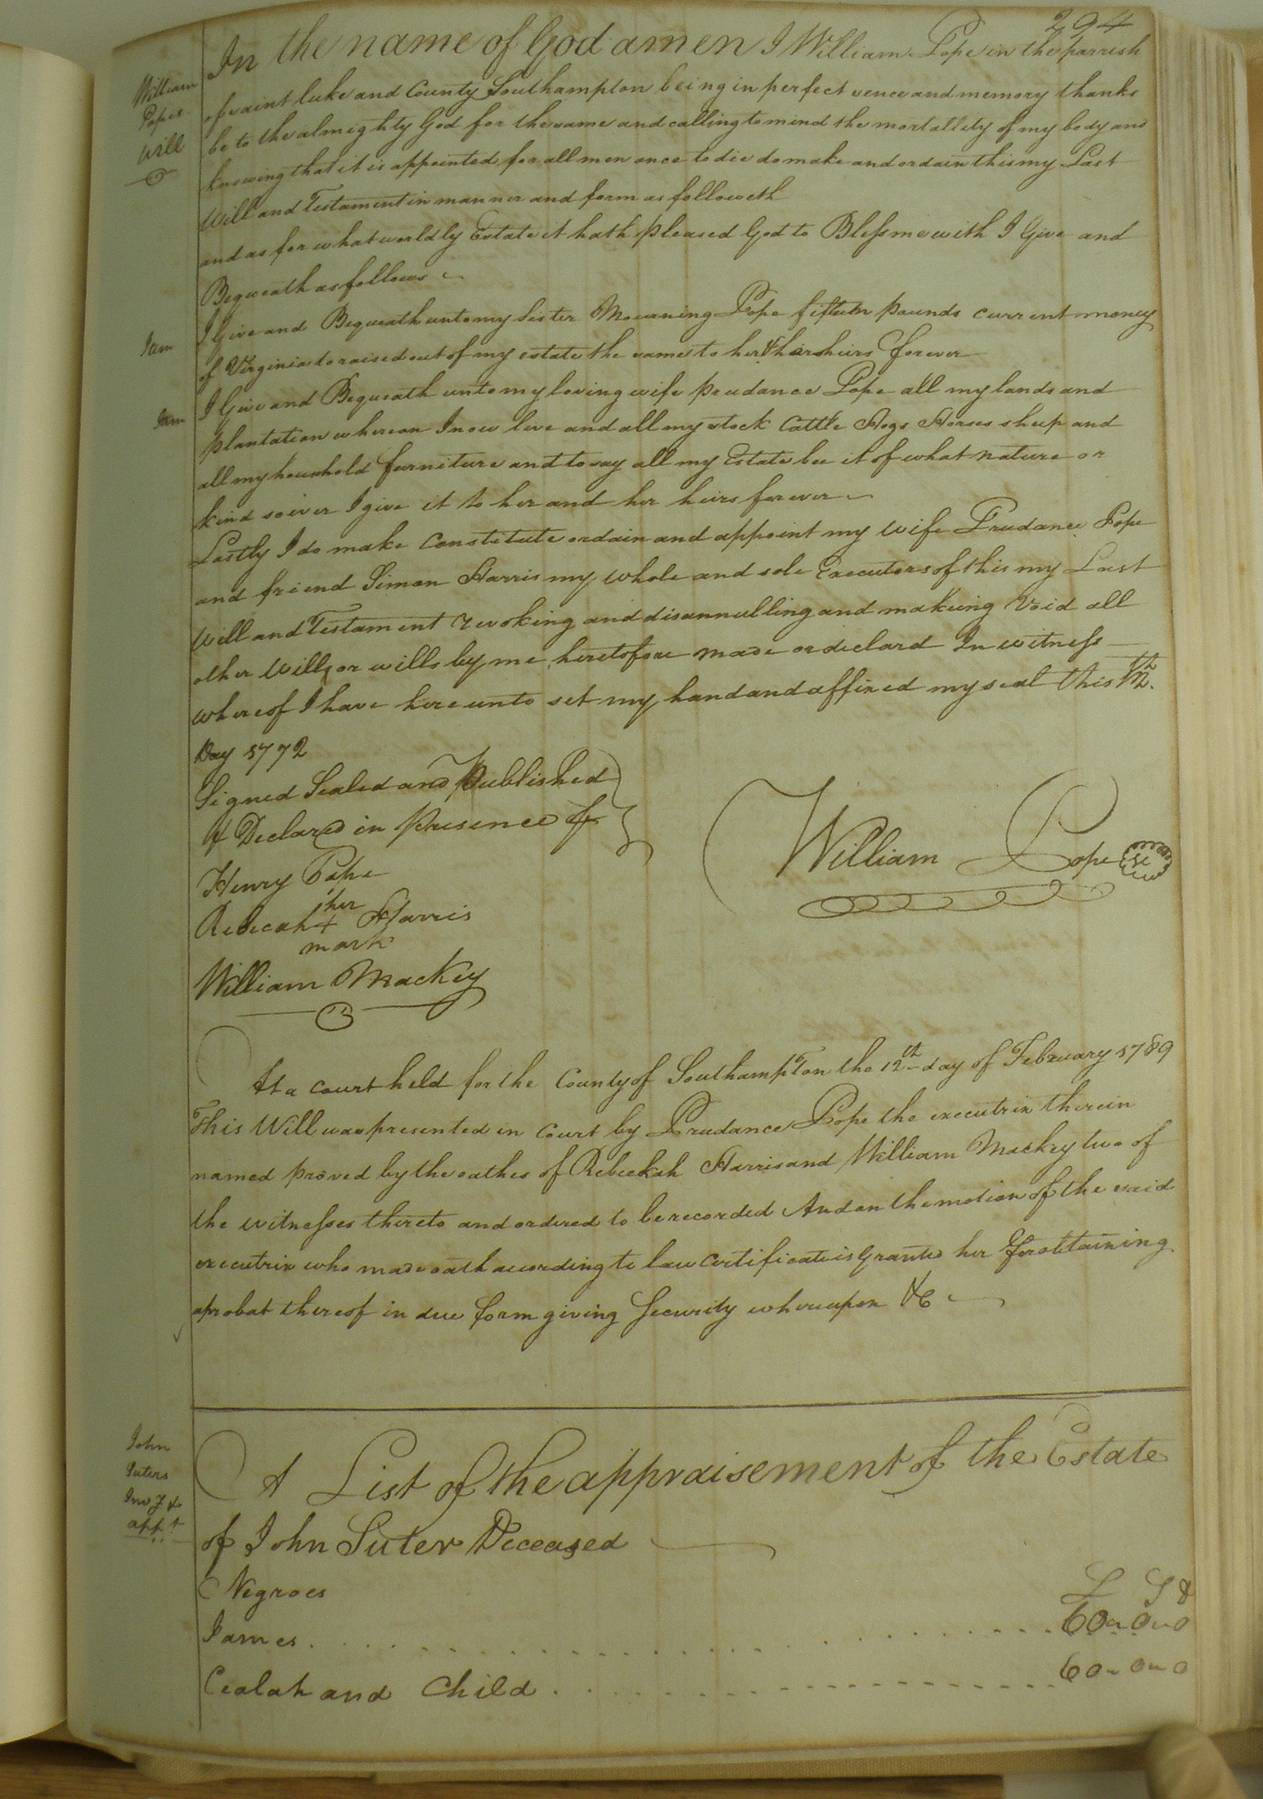 294
In the name of God amen I William Pope in the parrish
William
Popes
will
of saint luke and County Southampton being in perfect sence and memory thanks
be to the almighty God for the same and calling to mind the mortallety of my body and
knowing that it is appointed for all men once to die do make and ordain this my Last
Will and Testament in manner and form as followeth
and as for what worldly Estate it hath pleased God to Bless me with I Give and
Bequeath as follows
Iam I Give and Bequeath unto my Sister Mourning Pope fifteen pounds current money
of Virginia to raised out of my estate the same to her & her heirs forever
Iam I Give and Bequeath unto my loving wife prudance Pope all my lands and
plantation whereon I now live and all my stock Cattle Hogs Horses sheep and
all my household furniture and to say all my Estate bee it of what nature or
kind soever I give it to her and her heirs forever
Lastly I do make Constetute ordain and appoint my wife Prudance Pope
and friend Simon Harris my whole and sole Executors of this my Last
Will and Testament revoking and disannulling and makeing Void all
other Wills or wills by me heretofore made or declard In witness
whereof I have hereunto set my hand and affixed my seal this
Day 1772
Signed Sealed and Published
& Declared in presence of
William Pope
Henry Pope
Rebecah + Harris
her
mark
William Mackey
At a court held for the County of Southampton the 12th day of February 1789
This Will was presented in Court by Prudance Pope the executrix therein
named proved by the oathes of Rebeckah Harris and William Mackey two of
the witnesses thereto and ordered to be recorded And on the motion of the said
executrix who made oath according to law certificate is Granted her for obtaining
a probat thereof in due form giving Security whereupon &c
John
Suters
Inv.y &
app.t
A List of the appraisement of the Estate
of John Suter Deceased
Negroes £ S d
James 60 0 0
Cealah and Child 60 0 0